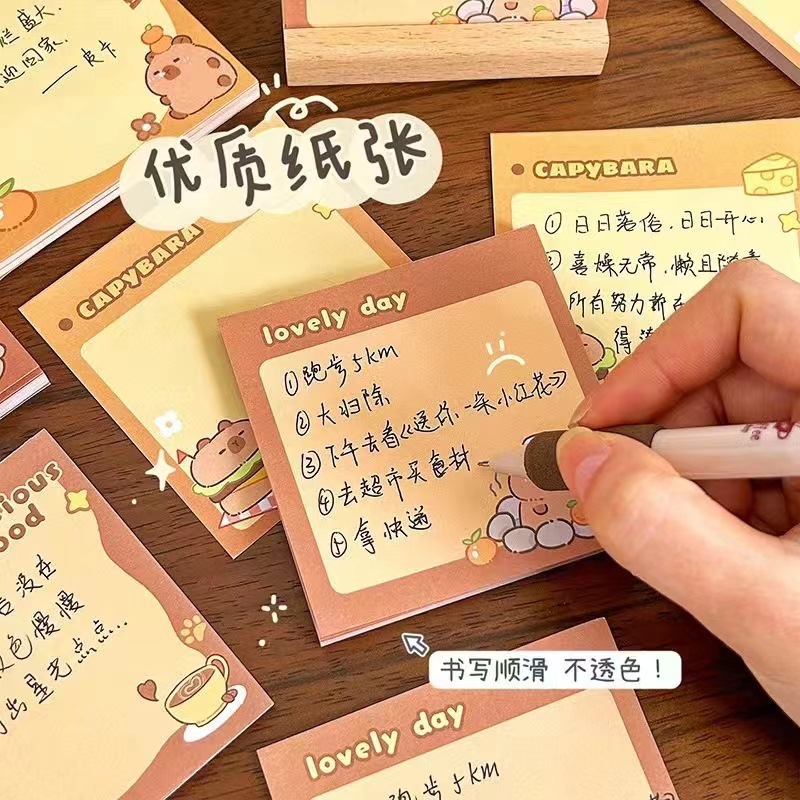 烂盛大
迎回家.
——皮卡
优质纸张
CAPYBARA
①日日落俗,日日开心
喜燥无常,懒且随意
所有努力都在
得
CAPYBARA
lovely day
①跑步5km
②大扫除
③下午去看《送你一朵小红花》
④去超市买食材
⑤拿快递
ood
没在
色慢慢
出星光点点...
书写顺滑 不透色！
lovely day
跑步5km